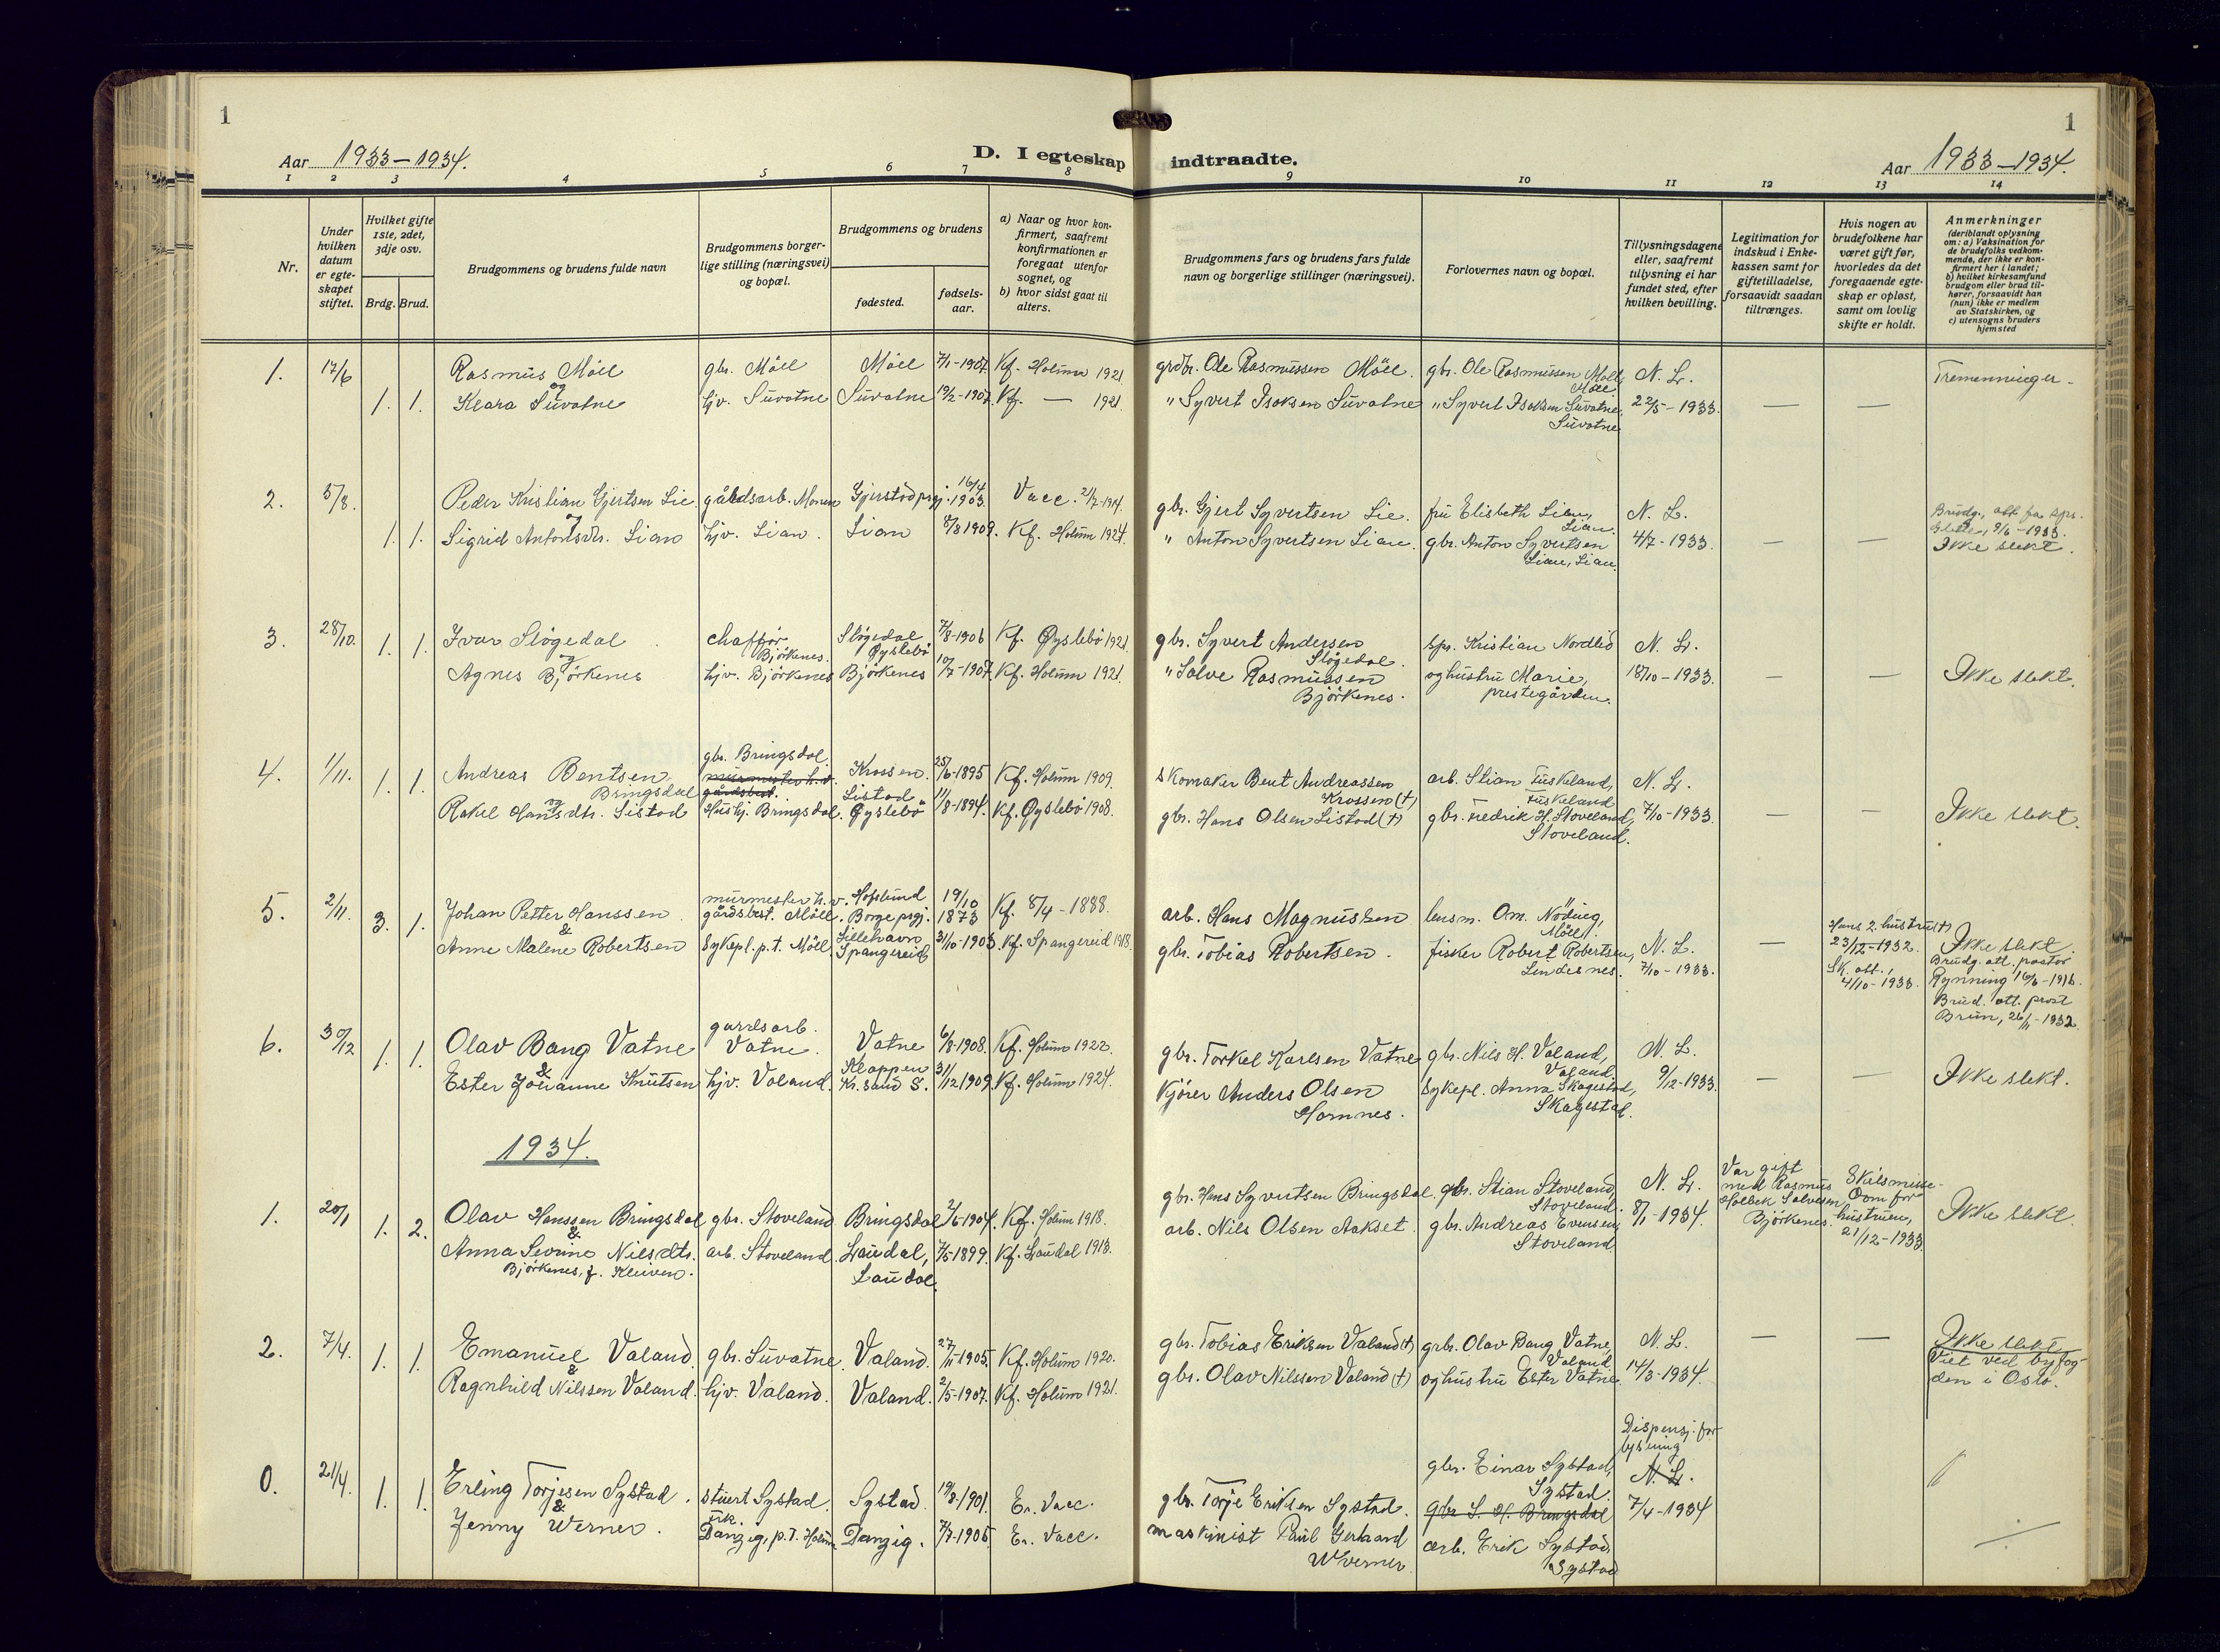 1
1
Aar 1933-1934.
D. I egteskap indtraadte.
Aar 1933-1934.
1 2 3 4 5 6 7 8 9 10 11 12 13 14
Nr.
Under hvilken datum er egte-skapet stiftet.
Hvilket gifte 1ste, 2det, 3dje osv.
Brdg. Brud.
Brudgommens og brudens fulde navn
Brudgommens borger-lige stilling (næringsvei) og bopæl.
Brudgommens og brudens
fødested.
fødsels-aar.
a) Naar og hvor kon-firmert, saafremt konfirmationen er foregaat utenfor sognet, og
b) hvor sidst gaat til alters.
Brudgommens fars og brudens fars fulde navn og borgerlige stillinger (næringsvei).
Forlovernes navn og bopæl.
Tillysningsdagene eller, saafremt tillysning ei har fundet sted, efter hvilken bevilling.
Legitimation for indskud i Enke-kassen samt for giftetilladelse, forsaavidt saadan tiltrænges.
Hvis nogen av brudefolkene har været gift før, hvorledes da det foregaaende egte-skap er opløst, samt om lovlig skifte er holdt.
Anmerkninger
(deriblandt oplysning om: a) Vaksination for de brudefolks vedkom-mende, der ikke er kon-firmert her i landet; b) hvilket kirkesamfund brudgom eller brud til-hører, forsaavidt han (hun) ikke er medlem av Statskirken, og c) utensogns bruders hjemsted
1. 17/6 Rasmus Möll gbr. Möll Möll 7/1-1907. Kf. Holum 1921. grdbr. Ole Rasmussen Möll. gbr. Ole Rasmussen Möll, Möll N. L. Tremenninger
og
1. 1. Klara Suvatne hjv. Suvatne Suvatne 19/2-1907. Kf. — 1921. " Syvert Isaksen Suvatne " Syvert Isaksen Suvatne, Suvatne 22/5-1933. — —
2. 5/8. Peder Kristian Gjertsen Lie gårdsarb. Gjerstad prgj. 16/4 1903. Vacc. 2/7-1914. gbr. Gjert Syvertsen Lie. fru Elisbeth Lian, Lian. N. L. Brudg., att. fra spr. 9/6-1933.
og
1. 1. Sigrid Antonsdtr. Lian hjv. Lian. Lian 8/8 1909. Kf. Holum 1924. " Anton Syvertsen Lian. gbr. Anton Syvertsen Lian, Lian. 4/7-1933. — — Ikke slekt.
3. 28/10. 1. 1. Ivar Slögedal chafför Björkenes. Slögedal Øyslebö 7/8-1906 Kf. Øyslebö 1921. gbr. Syvert Andersen Slögedal. spr. Kristian Nordlid N. L.
og
Agnes Björkenes hjv. Björkenes Björkenes 10/7-1907. Kf. Holum 1921. " Salve Rasmussen Björkenes. og hustru Marie, prestegården. 18/10-1933. — — Ikke slekt.
4. 1/11. 1. 1. Andreas Bentsen Bringsdal gbr. Bringsdal. murmester h.v. gårdsbest. Krossen. 25/6-1895 Kf. Holum 1909. skomaker Bent Andreassen Krossen (†) arb. Stian Fuskeland, Fuskeland N. L.
og
Rakel Hansdtr. Listad Hushj. Bringsdal. Listad Øyslebö 11/8-1894. Kf. Øyslebö 1908. gbr. Hans Olsen Listad (†) gbr. Fredrik H. Stoveland, Stoveland. 7/10-1933. — — Ikke slekt.
5. 2/11. 3. 1. Johan Petter Hanssen. murmester h.v. gårdsbest. Möll. Borge prgj. 19/10 1873 Kf. 8/4-1888. arb. Hans Magnussen lensm. Om. Nöding, Möll. Hans 2. hustru (†) 23/12-1932. Sk. att., 4/10-1933.
&
Anne Malene Robertsen Sykepl. p.t. Möll Lillehavn Spangereid 31/10-1903. Kf. Spangereid 1918. gbr. Tobias Robertsen. fisker Robert Robertsen, Lindesnes. N. L. 7/10-1933. — Ikke slekt. Brudg. att. pastor Rynning 16/6-1916. Brud. att. prost Brun, 26/-1932.
6. 30/12 1. 1. Olav Bang Vatne gardsarb. Vatne. Vatne 6/8-1908. Kf. Holum 1922. gbr. Torkel Karlsen Vatne gbr. Nils H. Valand, Valand. N. L.
&
Ester Johanne Knutsen hjv. Valand. Kloppen Kr.sand S. 31/12 1909. Kf. Holum 1924. Kjörer Anders Olsen Homnes. Sykepl. Anna Skagestad, Skagestad. 9/12-1933. — — Ikke slekt.
1934.
1. 20/1 1. 2. Olav Hanssen Bringsdal gbr. Stoveland Bringsdal 2/6-1904. Kf. Holum 1918. gbr. Hans Syvertsen Bringsdal. gbr. Stian Stoveland, Stoveland. N. L. Var gift med Rasmus Holbek Salvesen Björkenes. Skilsmisse-Dom for hustruen, 21/12-1933.
&
Anna Sevrine Nilsdtr. Björkenes, f. Kleiven. arb. Stoveland. Laudal, Laudal. 7/5-1899. Kf. Laudal 1913. arb. Nils Olsen Aakset. gbr. Andreas Evensen, Stoveland. 8/1-1934. Ikke slekt.
2. 7/4. 1. 1. Emanuel Valand. gbr. Suvatne. Valand. 27/11-1905. Kf. Holum 1920. gbr. Tobias Eriksen Valand (†) grbr. Olav Bang Vatne, Valand. N. L. — — Ikke slekt
&
Ragnhild Nilssen Valand. hjv. Valand. Valand. 2/5-1907. Kf. Holum 1921. gbr. Olav Nilssen Valand (†) og hustru Ester Vatne. 14/3-1934. Viet ved byfog-den i Oslo.
0. 21/4. 1. 1. Erling Torjesen Systad. stuert Systad. Systad. 19/8-1901. Er. Vacc. gbr. Torje Eriksen Systad. gbr. Einar Systad, Systad. Dispensj. for lysning N. L.
&
Jenny Werner. frk. Danzig, p.t. Holum Danzig. 7/7-1905. Er. Vacc. maskinist Paul Gerhard Werner. gbr S. H. Bringsdal arb. Erik Systad, Systad 7/4-1934